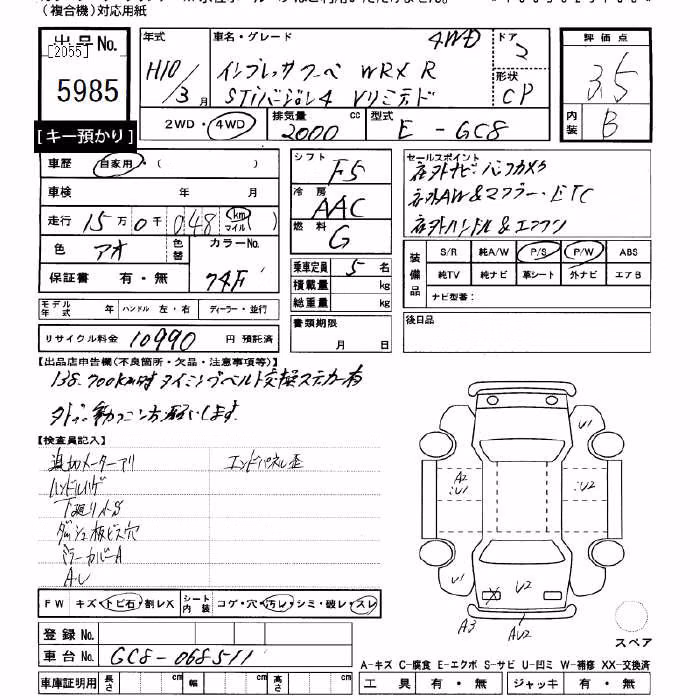 (複合機)対応用紙
出品No.
[2055]
5985
[キー預かり]
年式
H10/3月
車名・グレード
4WD
インプレッサクーペ WRX R
STiバージョン4 Vリミテッド
ドア
2
形状
CP
2WD・4WD
排気量
2000 cc
型式
E-GC8
評価点
3.5
内装
B
車歴 自家用・( )
車検 年 月
走行 15万0千048 km マイル ( )
色 アオ 色替 カラーNo.
保証書 有・無 74F
モデル年式 年 ハンドル 左・右 ディーラー・並行
リサイクル料金 10990 円 預託済
シフト F5
冷房 AAC
燃料 G
乗車定員 5名
積載量 kg
総重量 kg
書類期限
月 日
セールスポイント
社外ナビ・バックカメラ
社外AW&マフラー・ETC
社外ハンドル&エアクリ
装備品
S/R 純A/W P/S P/W ABS
純TV 純ナビ 革シート 外ナビ エアB
ナビ型番:
後日品
【出品店申告欄(不良箇所・欠品・注意事項等)】
138,700km時タイミングベルト交換ステッカー有
【検査員記入】
追加メーターアリ
エンドパネル歪
ハンドルハゲ
下廻りサS
ダッシュ板ビス穴
ミラーカバーA
A・U
FW キズ・トビ石・割レX シート内装 コゲ・穴・汚レ・シミ・破レ・スレ
登録No.
車台No. GC8-068511
車庫証明用 長さ cm 幅 cm 高さ cm
U1
A2
U1
U2
U1
U2
X
A3
AU2
スペア
A-キズ C-腐食 E-エクボ S-サビ U-凹ミ W-補修 XX-交換済
工具 有・無 ジャッキ 有・無